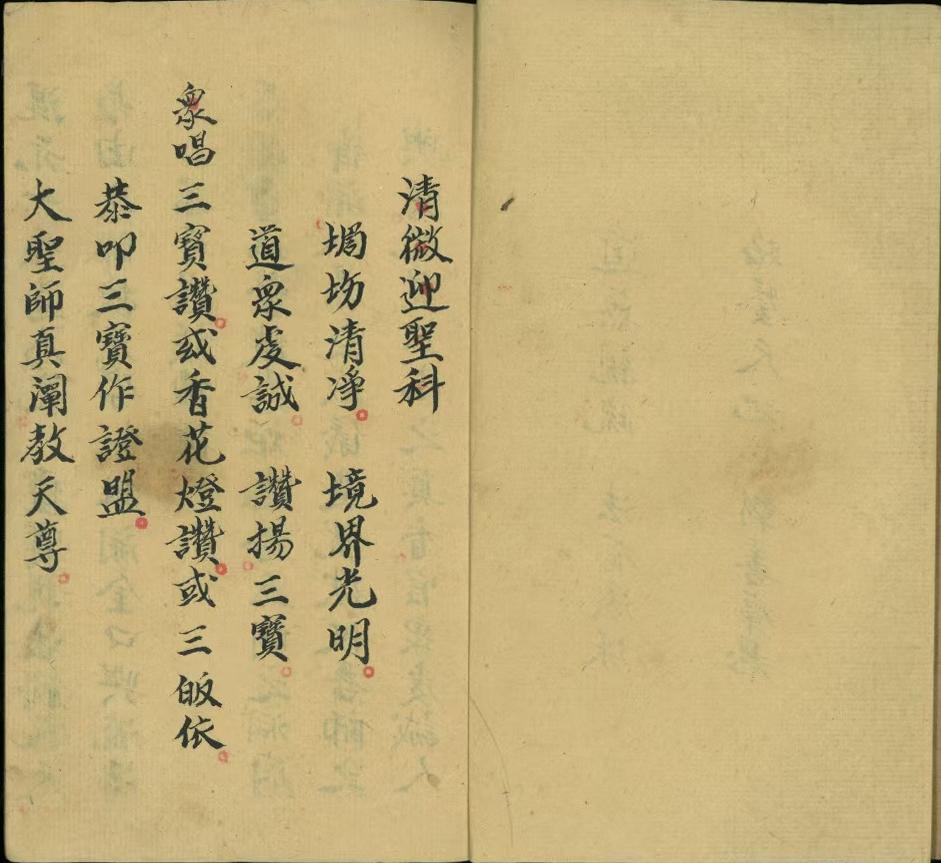 清微迎聖科
堈坊清凈。境界光明。
道眾虔誠。讚揚三寶。
眾唱三寶讚。或香花燈讚。或三皈依。
恭叩三寶作證盟。
大聖師真闡教天尊。